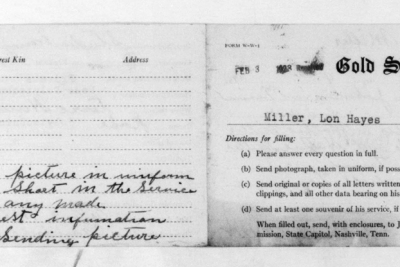 rest Kin
Address
picture in uniform
short in the service
any made
ust infumation
Sending picture
FEB 3
Gold S
Miller, Lon Hayes
Directions for filling:
(a) Please answer every question in full.
(b) Send photograph, taken in uniform, if poss
(c) Send original or copies of all letters written
clippings, and all other data bearing on his
(d) Send at least one souvenir of his service, if
When filled out, send, with enclosures, to J
mission, State Capitol, Nashville, Tenn.